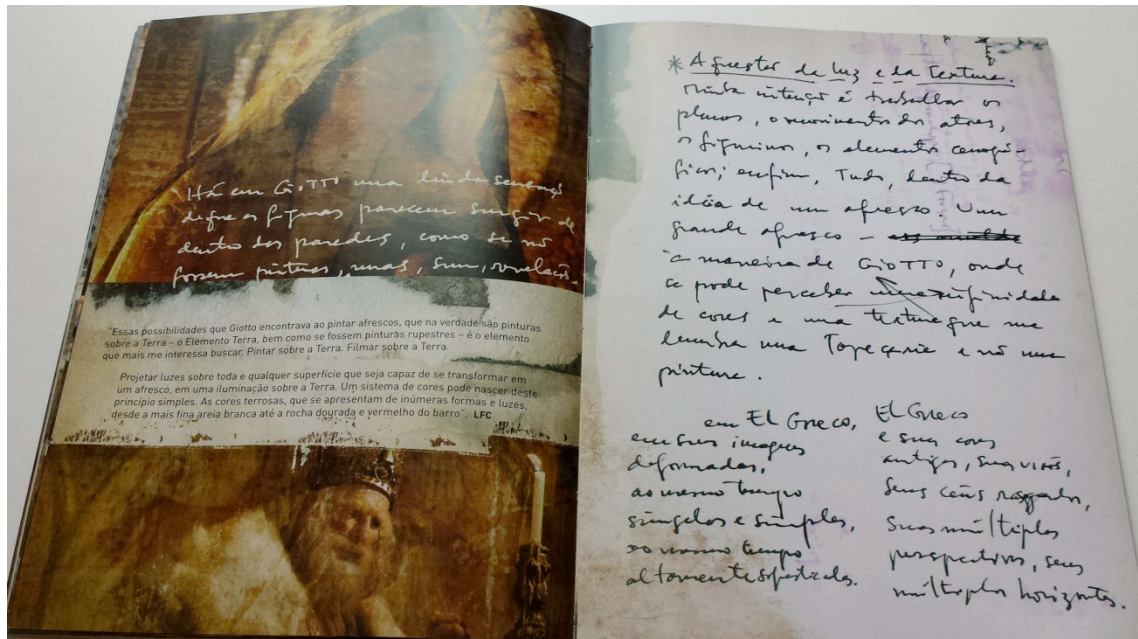 Há em GIOTTO uma linda sensação
de que as figuras parecem surgir de
dentro das paredes, como se não
fossem pinturas, mas, sim, revelações
"Essas possibilidades que Giotto encontrava ao pintar afrescos, que na verdade são pinturas
sobre a Terra – o Elemento Terra, bem como se fossem pinturas rupestres – é o elemento
que mais me interessa buscar. Pintar sobre a Terra. Filmar sobre a Terra.
Projetar luzes sobre toda e qualquer superfície que seja capaz de se transformar em
um afresco, em uma iluminação sobre a Terra. Um sistema de cores pode nascer deste
princípio simples. As cores terrosas, que se apresentam de inúmeras formas e luzes,
desde a mais fina areia branca até a rocha dourada e vermelho do barro". LFC
* A questão da luz e da textura.
minha intenção é trabalhar os
planos, o movimento dos atores,
os figurinos, os elementos cenográ-
ficos; enfim, Tudo, dentro da
idéia de um afresco. Um
grande afresco –
à maneira de GIOTTO, onde
se pode perceber uma infinidade
de cores e uma textura que me
lembra uma Tapeçaria e não uma
pintura.
em El Greco,
em suas imagens
deformadas,
ao mesmo tempo
singelas e simples,
ao mesmo tempo
altamente sofisticadas.
El Greco
e suas cores
antigas, suas visões,
seus céus rasgados,
suas múltiplas
perspectivas, seus
múltiplos horizontes.